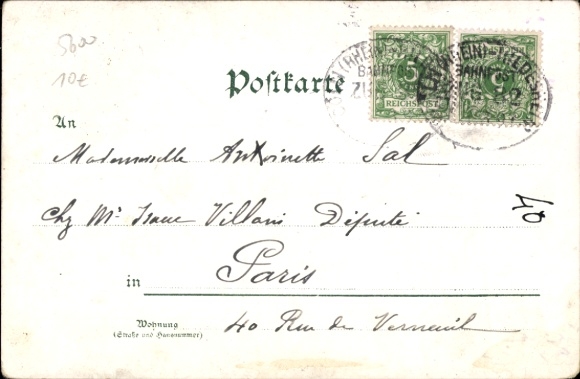 5600
10€
Postkarte
5
REICHSPOST
BAHNPOST
An
Mademoiselle Antoinette Sal
Chz Mr Isaac Villani Député
in Paris
Wohnung
(Straße und Hausnummer)
40 Rue de Verneuil